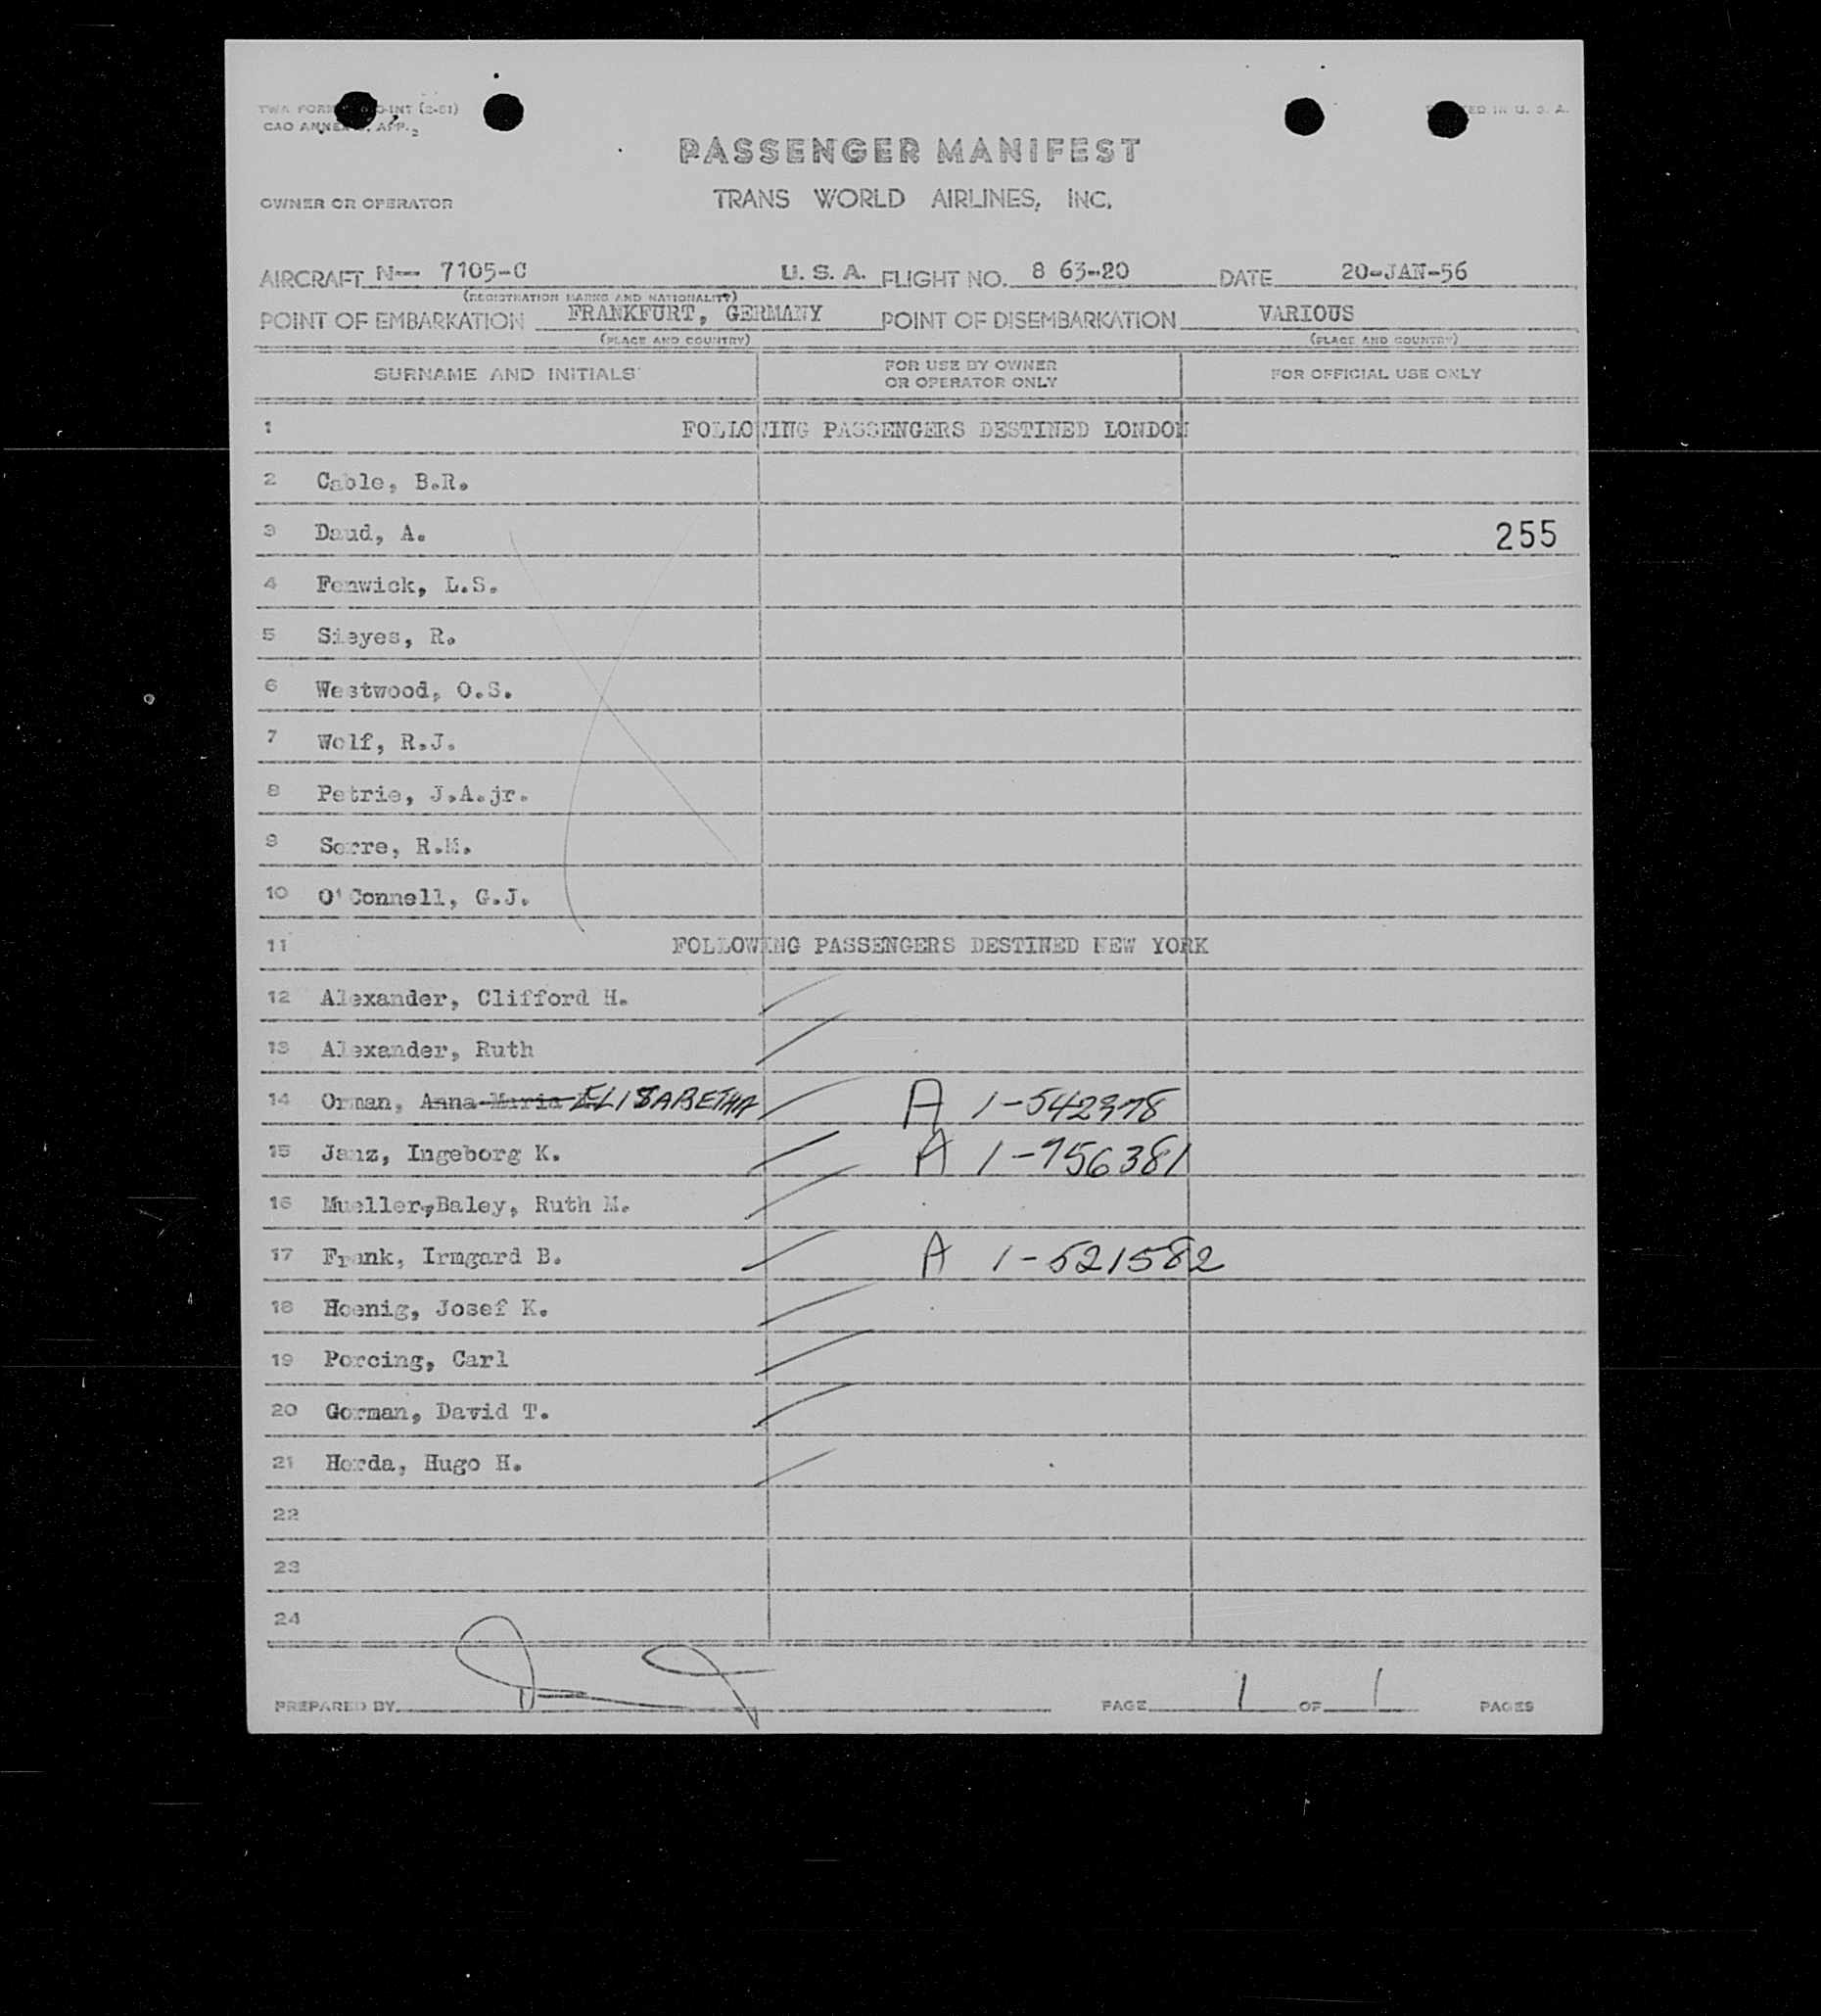 TWA FORM INT (2-51)
CAO ANNEX APP. 2
PRINTED IN U. S. A.
PASSENGER MANIFEST
OWNER OR OPERATOR
TRANS WORLD AIRLINES, INC.
AIRCRAFT N-- 7105-C U. S. A. FLIGHT NO. 8 63-20 DATE 20-JAN-56
(REGISTRATION MARKS AND NATIONALITY)
POINT OF EMBARKATION FRANKFURT, GERMANY POINT OF DISEMBARKATION VARIOUS
(PLACE AND COUNTRY) (PLACE AND COUNTRY)
SURNAME AND INITIALS FOR USE BY OWNER OR OPERATOR ONLY FOR OFFICIAL USE ONLY
1 FOLLOWING PASSENGERS DESTINED LONDON
2 Cable, B.R.
3 Daud, A. 255
4 Fenwick, L.S.
5 Sieyes, R.
6 Westwood, O.S.
7 Wolf, R.J.
8 Petrie, J.A.jr.
9 Serre, R.M.
10 O'Connell, G.J.
11 FOLLOWING PASSENGERS DESTINED NEW YORK
12 Alexander, Clifford H.
13 Alexander, Ruth
14 Orman, Anna Maria ELISABETHA A 1-542978
15 Janz, Ingeborg K. A 1-756381
16 Mueller,Baley, Ruth M.
17 Frank, Irmgard B. A 1-521582
18 Hoenig, Josef K.
19 Porcing, Carl
20 Gorman, David T.
21 Horda, Hugo H.
22
23
24
PREPARED BY PAGE 1 OF 1 PAGES